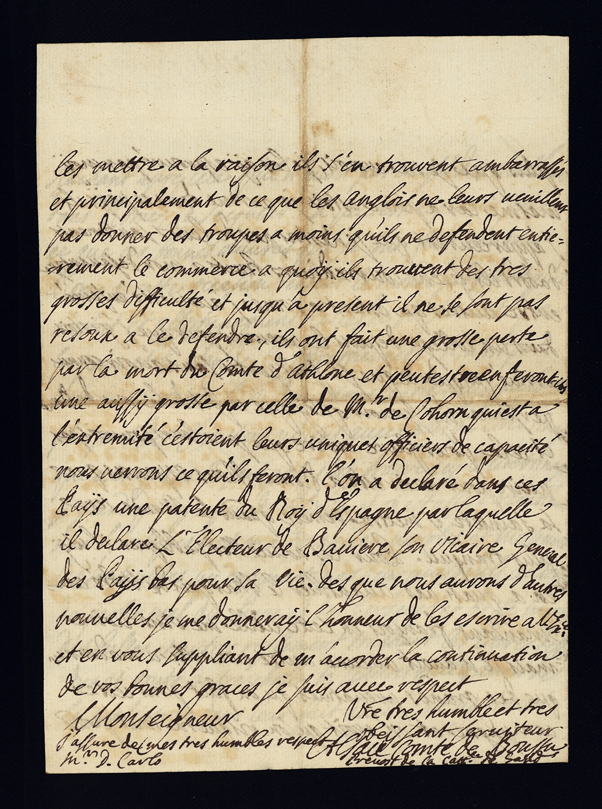 les mettre a la raison ils s'en trouvent ambarrasses
et principalement de ce que les Anglois ne leurs veuillent
pas donner des troupes a moins qu'ils ne defendent entie=
=rement le commerce a quoÿ ils trouvent des tres
grosses difficulté et jusqu'a present il ne se sont pas
resoux a le defendre, ils ont fait une grosse perte
par la mort du Comte d'Athlone et peutestre en feront ils
une aussÿ grosse par celle de M.r de Cohorn qui est a
l'extremité c'estoient leurs uniques officiers de capacité
nous verrons ce qu'ils feront. l'on a declaré dans ces
Païjs une patente du Roÿ d'Espagne par laquelle
il declare L'Electeur de Baviere son Vicaire General
des Païjs bas pour sa vie. des que nous aurons d'autres
nouvelles je me donneraÿ l'honneur de les escrire a
et en vous suppliant de m'accorder la continuation
de vos bonnes graces je suis avec respect
Monseigneur Vre tres humble et tres
obeissant serviteur
J'assure de mes tres humbles respects
M.r D. Carlo Comte de
Prevost de la de Gand